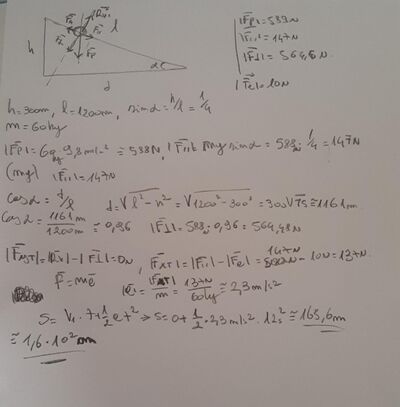 h
l
d
α
|Fp| = 589N
|F₁₁| = 147N
|F⊥| = 564,5N
|Fe| = 10N
h = 300m, l = 1200m, sin α = h/l = 1/4
m = 60kg
|Fp| = 60kg 9,8m/s² ≅ 588N, |F₁₁| mg sin α = 588 · 1/4 = 147N
(mg) |F₁₁| = 147N
cos α = d/l   d = √l² - h² = √1200² - 300² = 300√15 ≅ 1161m
cos α = 1161m/1200m ≅ 0,96   |F⊥| = 588 · 0,96 = 564,48N
= |Rv| - |F⊥| = 0N, = |F₁₁| - |Fe| = 147N - 10N = 137N
= 137N/60kg ≅ 2,3m/s²
S = V₁ · t + 1/2 at² → S = 0 + 1/2 · 2,3m/s² · 12s² ≅ 165,6m
≅ 1,6 · 10² m